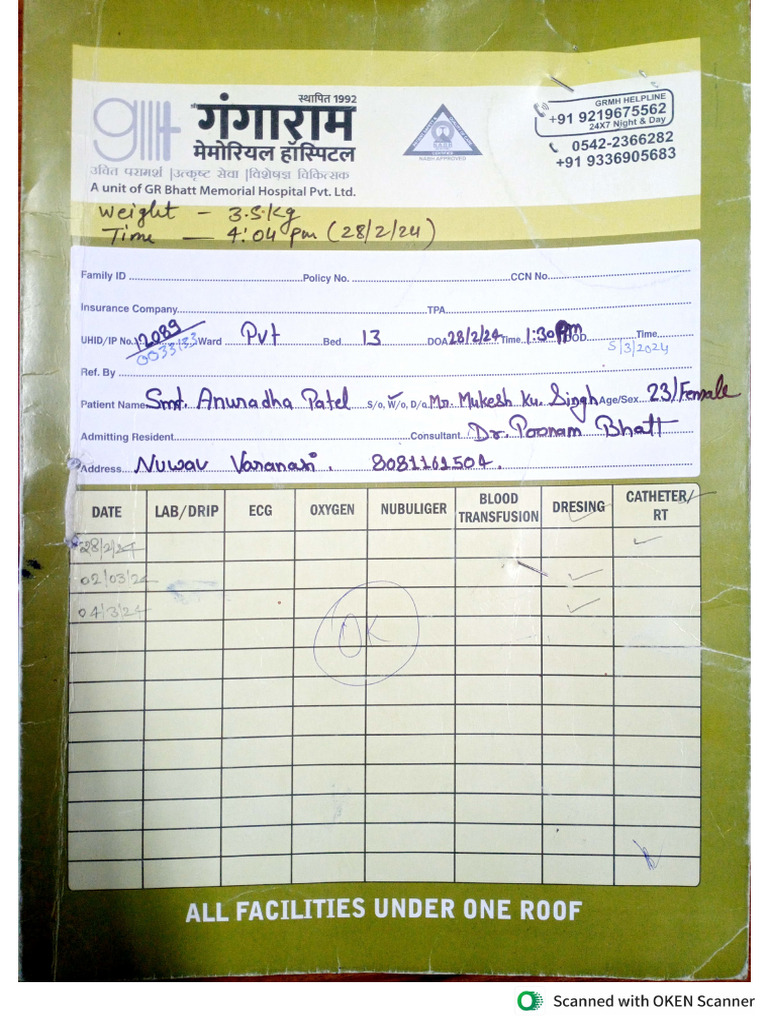 स्थापित 1992
श्री गंगाराम
मेमोरियल हॉस्पिटल
उचित परामर्श |उत्कृष्ट सेवा |विशेषज्ञ चिकित्सक
A unit of GR Bhatt Memorial Hospital Pvt. Ltd.
NABH APPROVED
GRMH HELPLINE
+91 9219675562
24X7 Night & Day
0542-2366282
+91 9336905683
Weight - 3.5 kg
Time - 4:04 pm (28/2/24)
Family ID Policy No. CCN No.
Insurance Company TPA
UHID/IP No. 12089 Ward Pvt Bed 13 DOA 28/2/24 Time 1:30 Pm DOD Time
0033133 5/3/2024
Ref. By
Patient Name Smt. Anuradha Patel S/o, W/o, D/o Mr. Mukesh Ku. Singh Age/Sex 23/Female
Admitting Resident Consultant Dr. Poonam Bhatt
Address Nuwav Varanasi. 8081161504.
DATE LAB/DRIP ECG OXYGEN NUBULIGER BLOOD TRANSFUSION DRESING CATHETER/ RT
28/2/24 ✓
02/03/24 ✓
04/3/24 ✓
OK
ALL FACILITIES UNDER ONE ROOF
Scanned with OKEN Scanner